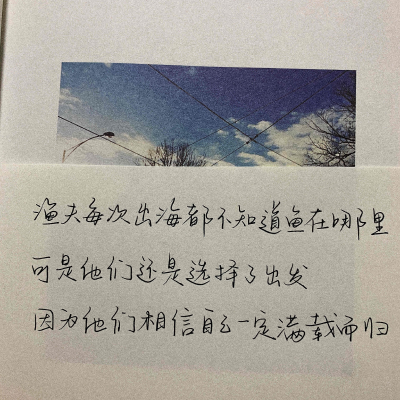 渔夫每次出海都不知道鱼在哪里
可是他们还是选择了出发
因为他们相信自己一定满载而归